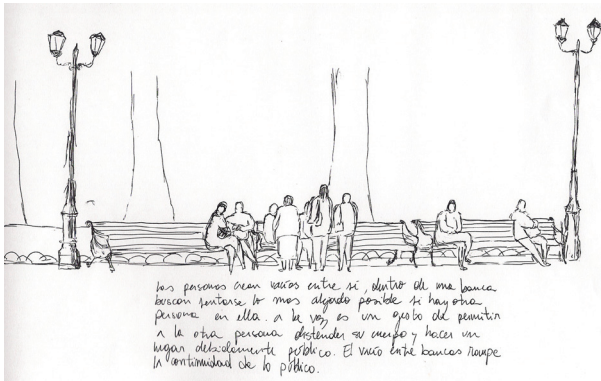 Las personas crean vacíos entre sí, dentro de una banca
buscan sentarse lo mas alejado posible si hay otra
persona en ella. a la vez es un gesto de permitir
a la otra persona distender su cuerpo y hacer un
lugar debidamente público. El vacío entre bancas rompe
la continuidad de lo público.